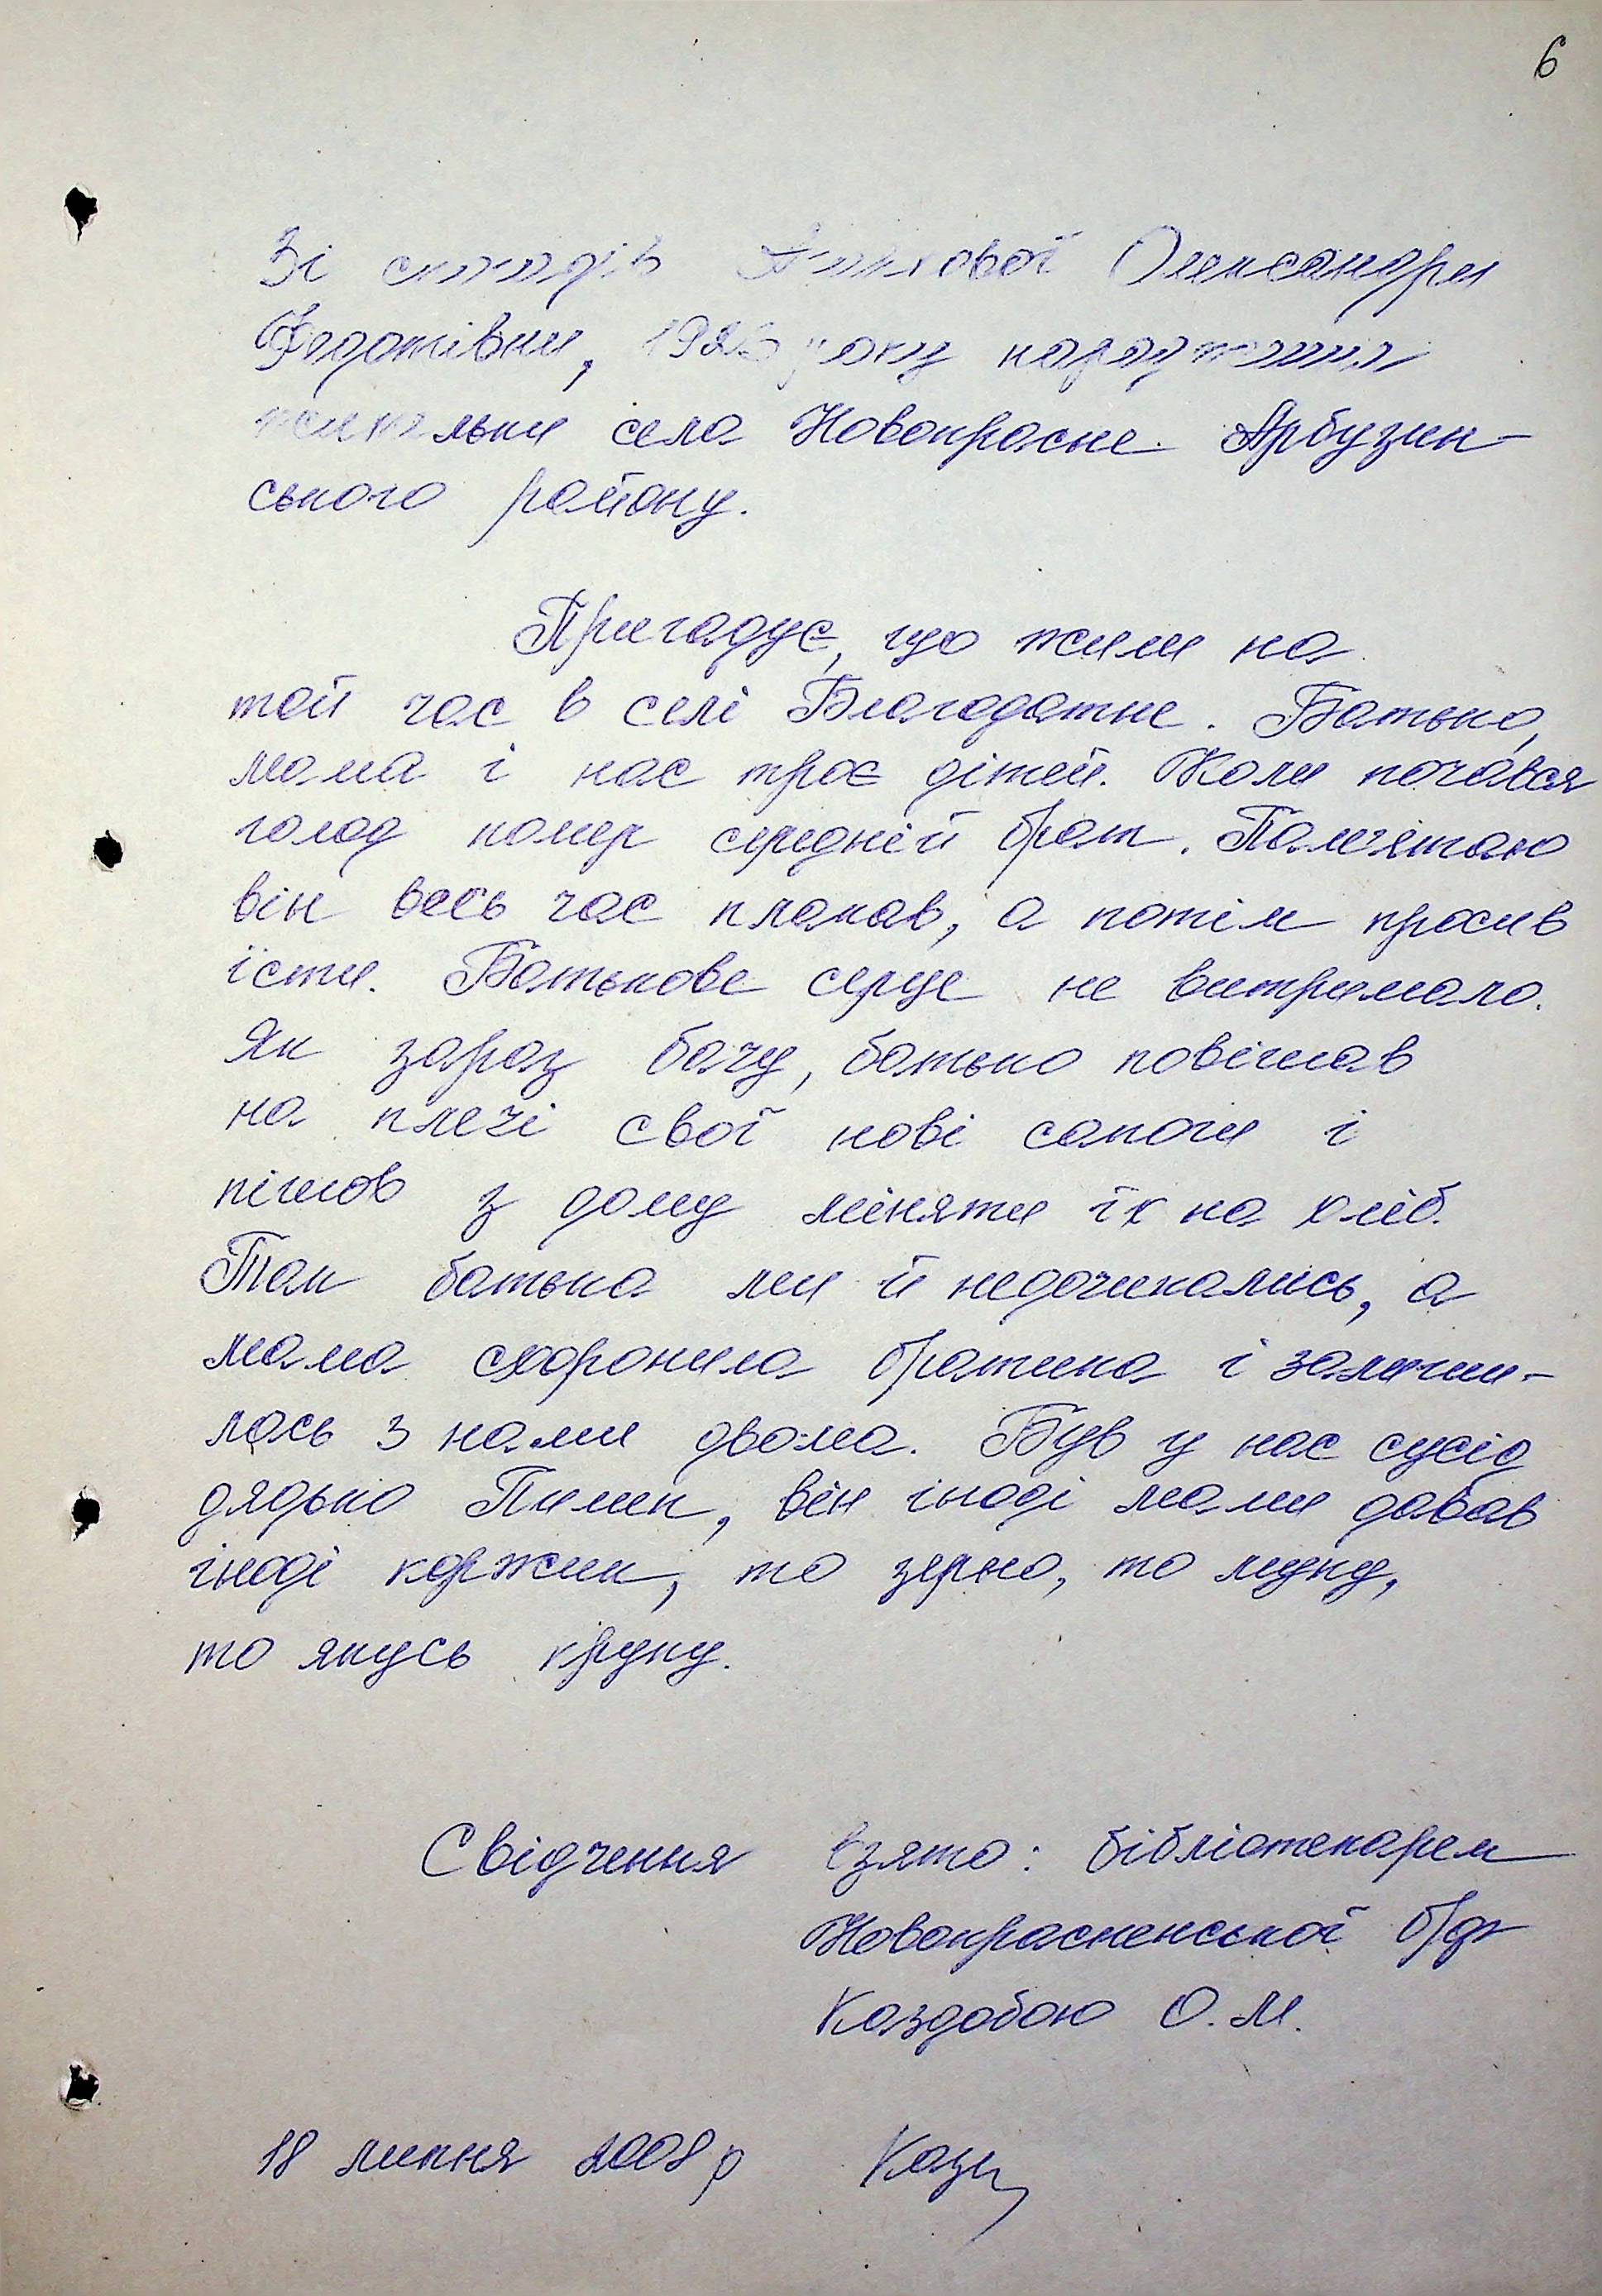 6
Зі спогадів Олександри
Федотівни, 1923 року народження
жительки села Новокрасне Арбузин-
ського району.
Пригадує, що жили на
той час в селі Благодатне. Батько,
мама і нас троє дітей. Коли почався
голод помер середній брат. Пам'ятаю
він весь час плакав, а потім просив
їсти. Батькове серце не витримало.
Як зараз бачу, батько повішав
на плечі свої нові сапоги і
пішов з дому міняти їх на хліб.
Так батька ми й недочикались, а
мама схоронила братика і залиши-
лась з нами двома. Був у нас сусід
дядько Пимен, він іноді мами давав
іноді коржик, то зерно, то муку,
то якусь крупу.
Свідчення взято: бібліотекарем
Новокрасненської б/ф
Каздобою О. М.
18 липня 2008 р